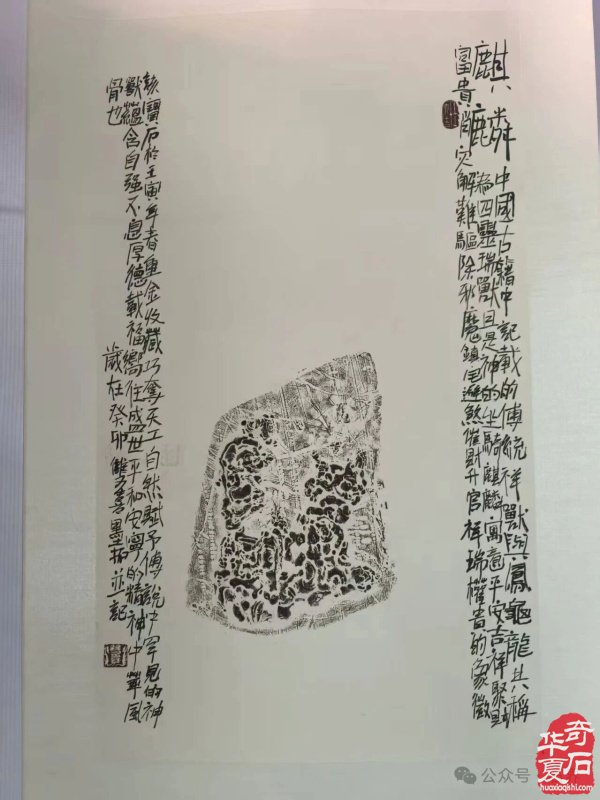 麒麟
中國古籍中記載的傳統祥獸與鳳龜龍共稱
為四靈瑞獸且是神的坐騎麒麟寓意平安吉祥聚財
富貴消灾解難驅除邪魔鎮宅避煞催財升官祥瑞權貴的象徵
該寶石於壬寅年春重金收藏巧奪天工自然賦予傳說中罕見的神
獸蘊含自强不息厚德載福嚮往盛世平和安寧的精神中華風
骨也
歲在癸卯雙喜墨拓並記
公众号
华夏奇石
huaxiaqishi.com